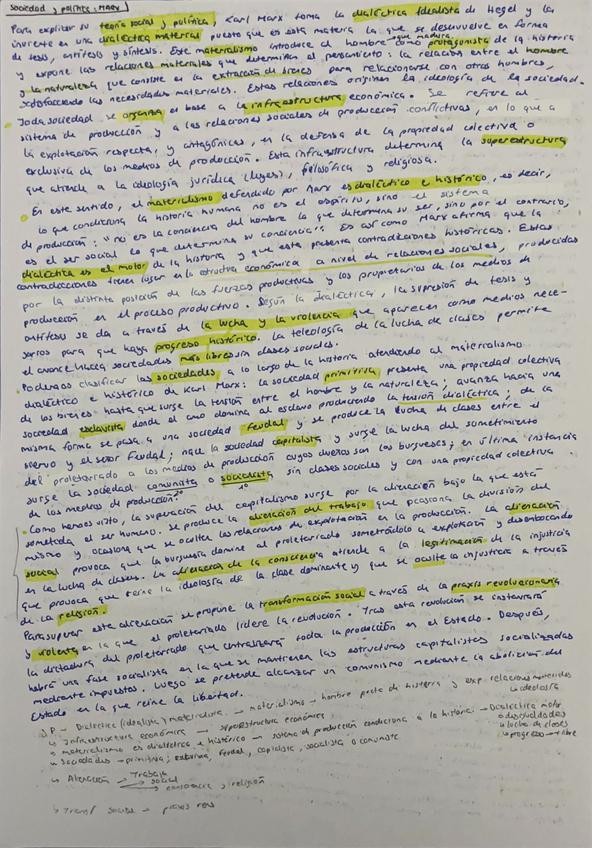 Sociedad y política: MARX
Para explicar su teoría social y política, Karl Marx toma la dialéctica Idealista de Hegel y la
invierte en una dialéctica material puesto que es esta materia la que se desenvuelve en forma
de tesis, antítesis y síntesis. Este materialismo introduce al hombre como protagonista de la historia
y expone las relaciones materiales que determinan el pensamiento: la relación entre el hombre
y la naturaleza que consiste en la extracción de bienes para relacionarse con otros hombres,
satisfaciendo las necesidades materiales. Estas relaciones originan la ideología de la sociedad.
Toda sociedad se organiza en base a la infraestructura económica. Se refiere al
sistema de producción y a las relaciones sociales de producción conflictivas, en lo que a
la explotación respecta, y antagónicas, en la defensa de la propiedad colectiva o
exclusiva de los medios de producción. Esta infraestructura determina la superestructura
que atiende a la ideología jurídica (leyes), filosófica y religiosa.
En este sentido, el materialismo defendido por Marx es dialéctico e histórico, es decir,
lo que condiciona la historia humana no es el espíritu, sino el sistema
de producción: "no es la conciencia del hombre la que determina su ser, sino por el contrario,
es el ser social lo que determina su conciencia". Es así como Marx afirma que la
dialéctica es el motor de la historia y que esta presenta contradicciones históricas. Estas
contradicciones tienen lugar en la estructura económica a nivel de relaciones sociales, producidas
por la distinta posición de las fuerzas productivas y los propietarios de los medios de
producción en el proceso productivo. Según la dialéctica, la supresión de tesis y
antítesis se da a través de la lucha y la violencia que aparecen como medios nece-
sarios para que haya progreso histórico. La teleología de la lucha de clases permite
el avance hacia sociedades más libres sin clases sociales.
Podemos clasificar las sociedades a lo largo de la historia atendiendo al materialismo
dialéctico e histórico de Karl Marx: la sociedad primitiva presenta una propiedad colectiva
de los bienes hasta que surge la tensión entre el hombre y la naturaleza; avanza hacia una
sociedad esclavista donde el amo domina al esclavo produciendo la tensión dialéctica; de la
misma forma se pasa a una sociedad feudal y se produce la lucha de clases entre el
siervo y el señor feudal; nace la sociedad capitalista y surge la lucha del sometimiento
del proletariado a los medios de producción cuyos dueños son los burgueses; en última instancia
surge la sociedad comunista o socialista sin clases sociales y con una propiedad colectiva
de los medios de producción. 2º 1º
Como hemos visto, la superación del capitalismo surge por la alienación bajo la que está
sometido el ser humano. Se produce la alienación del trabajo que ocasiona la división del
mismo y ocasiona que se oculte las relaciones de explotación en la producción. La alienación
social provoca que la burguesía domine al proletariado sometiéndolo a explotación y desembocando
en la lucha de clases. La alienación de la consciencia atiende a la legitimación de la injusticia
que provoca que reine la ideología de la clase dominante y que se oculte la injusticia a través
de la religión.
Para superar esta alienación se propone la transformación social a través de la praxis revolucionaria
y violenta en la que el proletariado lidere la revolución. Tras esta revolución se instaurará
la dictadura del proletariado que centralizará toda la producción en el Estado. Después,
habrá una fase socialista en la que se mantienen las estructuras capitalistas socializadas
mediante impuestos. Luego se pretende alcanzar un comunismo mediante la abolición del
Estado en la que reine la libertad.
materialismo – hombre parte de historia y exp. relaciones materiales
ideología
Infraestructura económica – superestructura económica
materialismo es dialéctico e histórico – sistema de producción condiciona a la historia – Dialéctica motor
desigualdades
Sociedades – primitiva, esclavista, feudal, capitalista, socialista o comunista
lucha de clases
progreso – libre
Alienación – Trabajo
social
consciencia y religión
Transf social – praxis rev